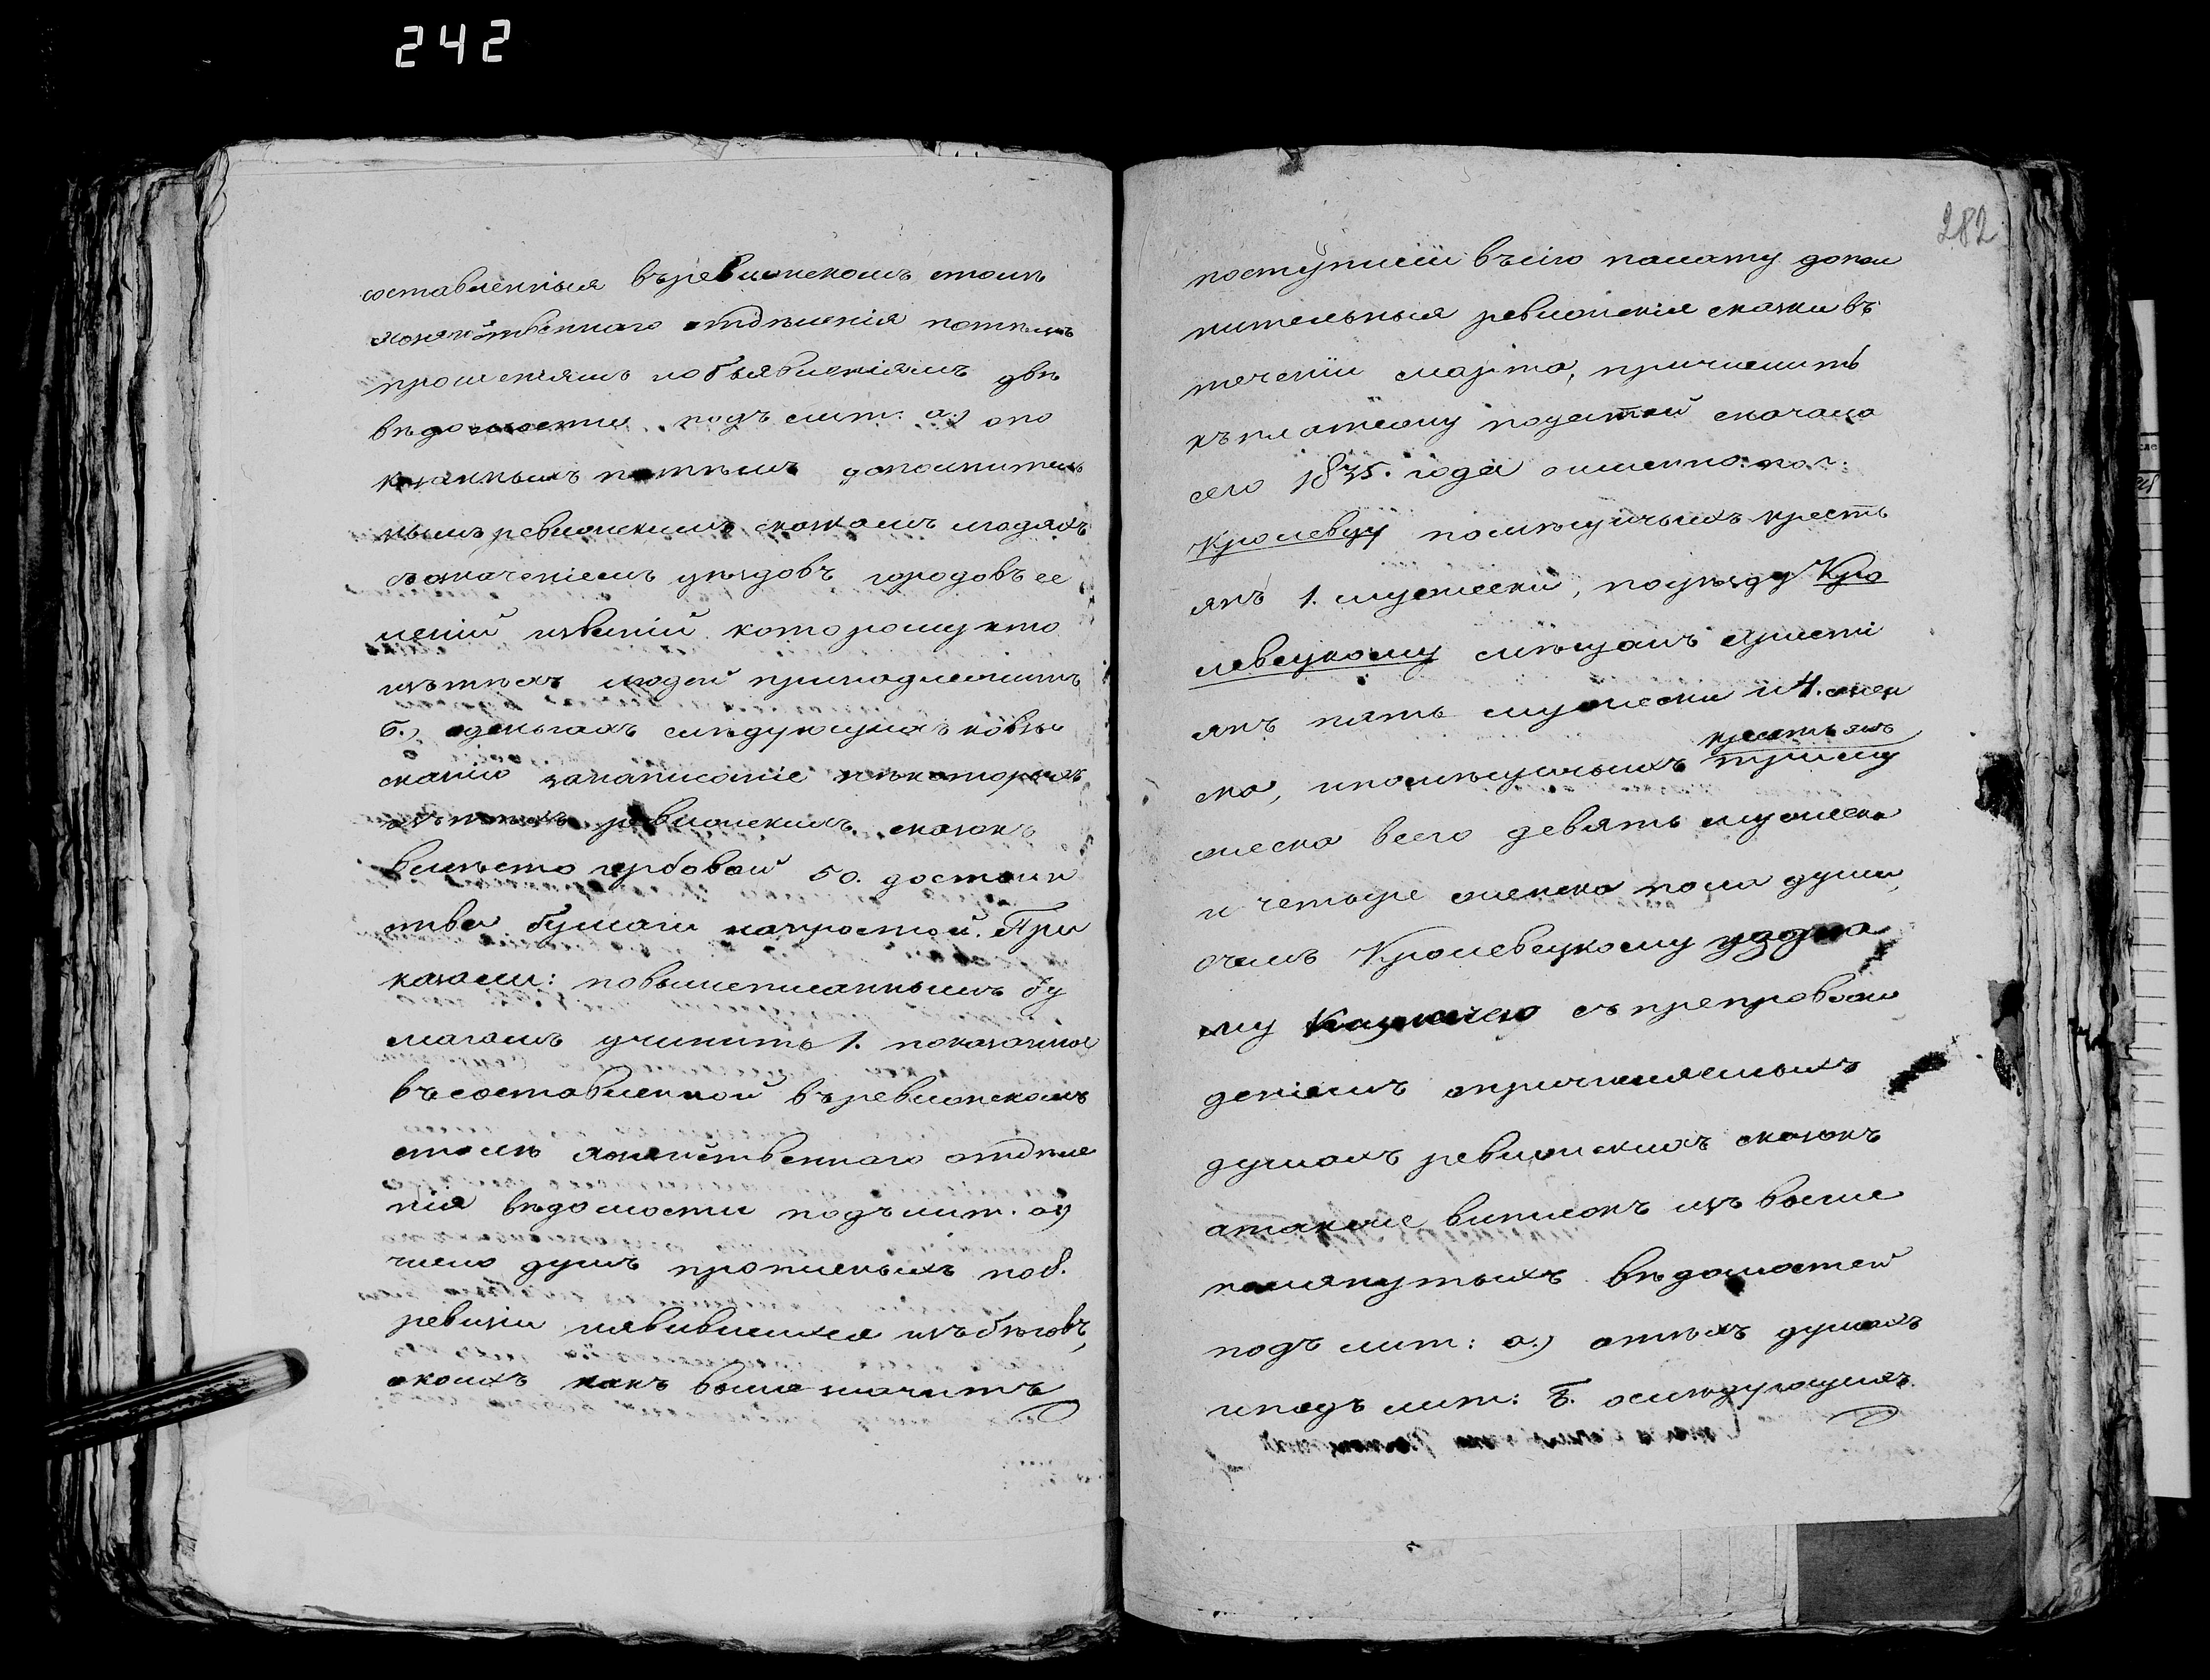 242
282
составленныя въ ревизскомъ столѣ
хозяйственнаго отдѣленія потѣмъ
прошеніямъ иобъявленіямъ двѣ
вѣдомости подъ лит: а.) опо
казанныхъ потѣмъ дополнитель
нымъ ревизскимъ сказкамъ людяхъ
съозначеніемъ уѣздовъ городовъ се
леній извѣній которому кто
изътѣхъ людей принадлежитъ
б.) оденьгахъ слѣдующихъ ковзы
сканію занаписаніе нѣкоторыхъ
изътѣхъ ревизскихъ сказокъ
вмѣсто гербовой 50. достоин
ства бумаги напростой. При
казали: повышеписаннымъ бу
магамъ учинить 1. показанное
въсоставленной въревизскомъ
столѣ хозяйственнаго отдѣле
нія вѣдомости подълит. а)
число душъ прописныхъ по 8.
ревизіи иявившихся изъбѣговъ,
окоихъ какъ выше значитъ
поступили въсію палату допол
нительныя ревизскія сказки въ
теченіи марта, причислить
къплатежу податей сначала
сего 1835. года аименно: по г:
Кролевцу помѣщичьихъ кресть
янъ 1. мужеска, поуѣзду Кро
левецкому мѣщанъ христі
янъ пять мужеска и 4. жен
ска, ипомѣщичьихъ крестьянъ три му
жеска всего девять мужеска
и четыре женска пола души,
очемъ Кролевецкому уѣздно
му Казначею съ препровож
деніемъ опричисляемыхъ
душахъ ревизскихъ сказокъ
атакже выписокъ изъ выше
помянутыхъ вѣдомостей
подъ лит: а.) отѣхъ душахъ
иподъ лит: б. ослѣдующихъ